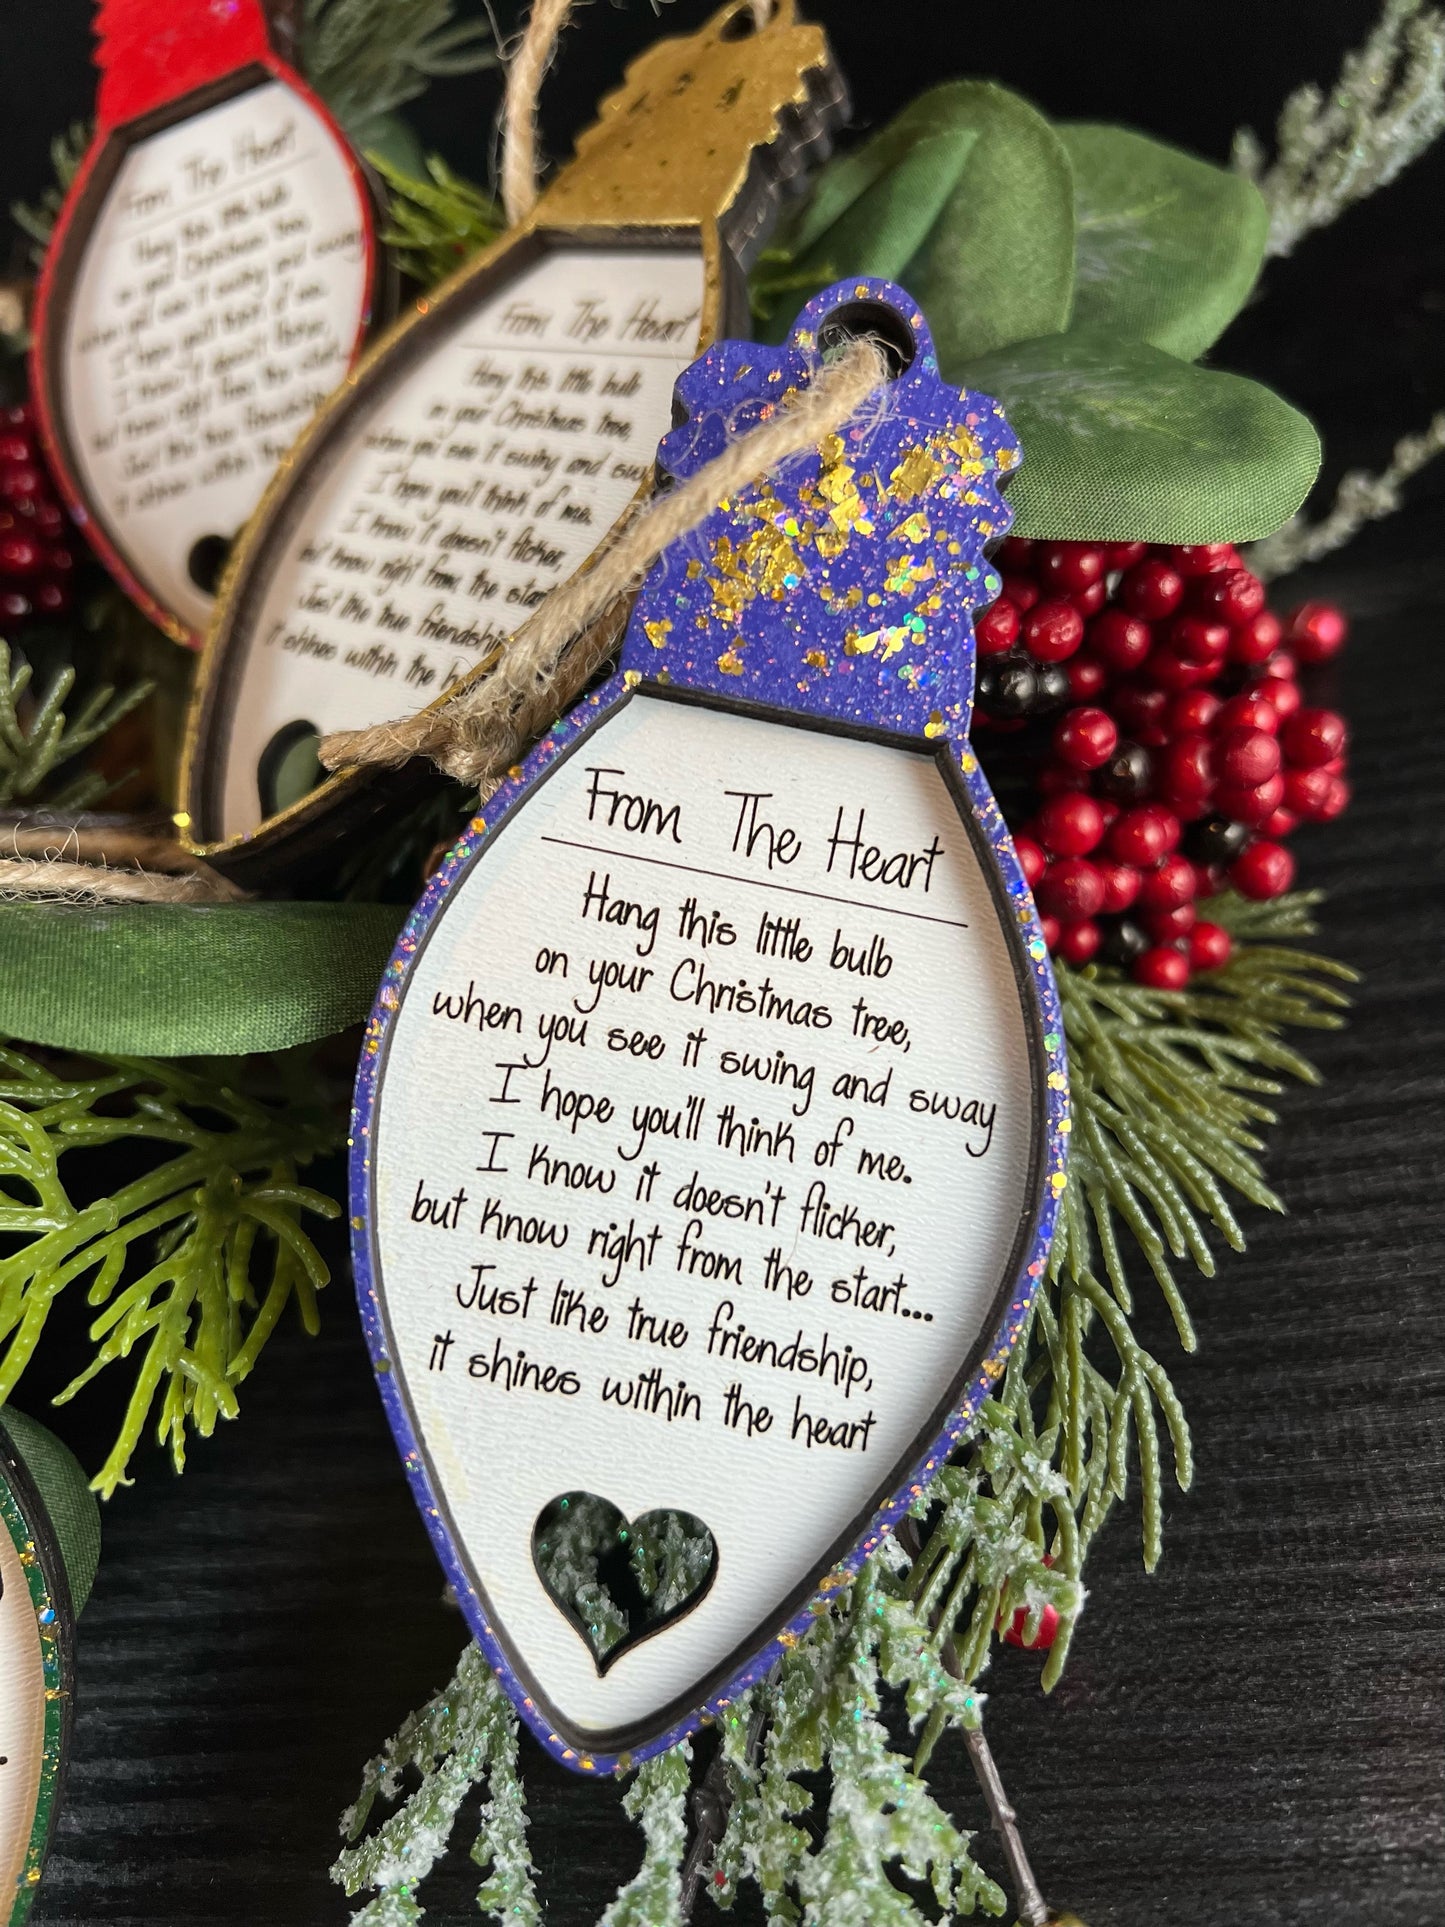 From The Heart
Hang this little bulb
on your Christmas tree,
when you see it swing and sway
I hope you'll think of me.
I know it doesn't flicker,
but know right from the start...
Just like true friendship,
it shines within the heart
From The Heart
Hang this little bulb
on your Christmas tree,
when you see it swing and
I hope you'll think of me.
I know it doesn't flicker,
but know right from the start
Just like true friendship
it shines within the
From The Heart
Hang this little bulb
on your Christmas tree,
when you see it swing and sway
I hope you'll think of me.
I know it doesn't flicker,
but know right from the start
Just like true friendship
it shines within the